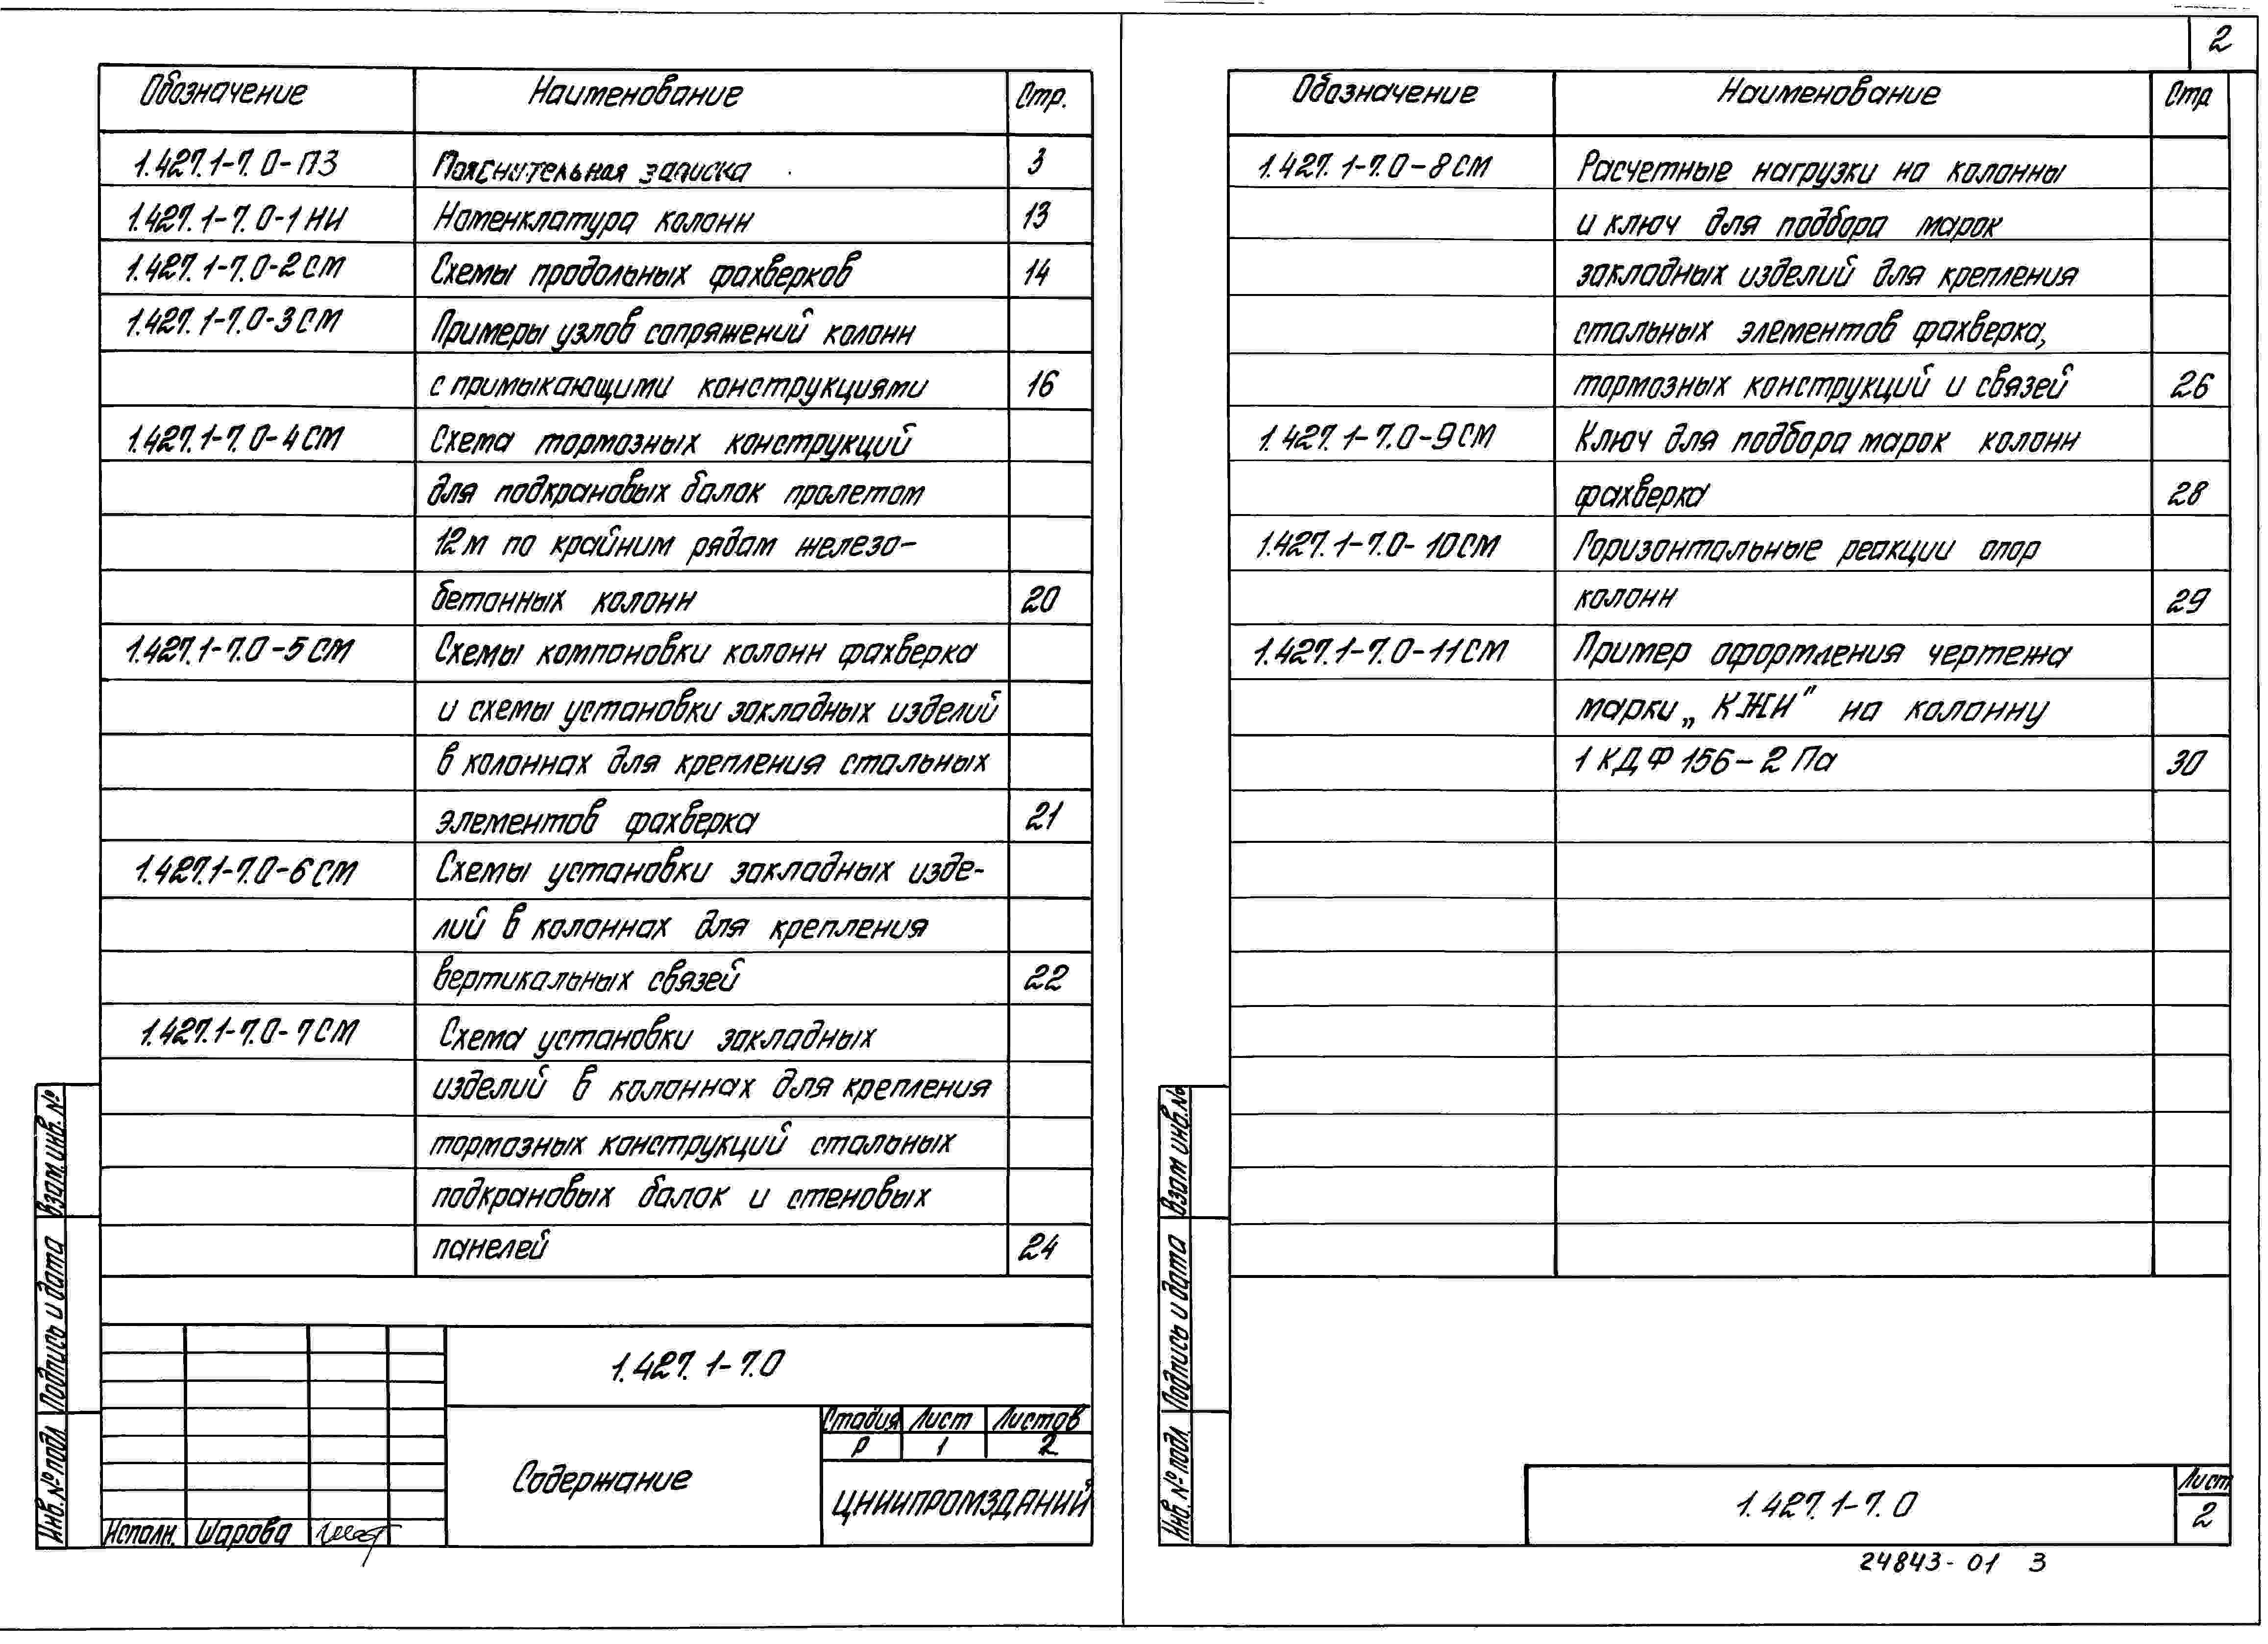 2
Обозначение Наименование Стр.
1.427.1-7.0-ПЗ Пояснительная записка 3
1.427.1-7.0-1НИ Номенклатура колонн 13
1.427.1-7.0-2СМ Схемы продольных фахверков 14
1.427.1-7.0-3СМ Примеры узлов сопряжений колонн
с примыкающими конструкциями 16
1.427.1-7.0-4СМ Схема тормозных конструкций
для подкрановых балок пролетом
12м по крайним рядам железо-
бетонных колонн 20
1.427.1-7.0-5СМ Схемы компоновки колонн фахверка
и схемы установки закладных изделий
в колоннах для крепления стальных
элементов фахверка 21
1.427.1-7.0-6СМ Схемы установки закладных изде-
лий в колоннах для крепления
вертикальных связей 22
1.427.1-7.0-7СМ Схема установки закладных
изделий в колоннах для крепления
тормозных конструкций стальных
подкрановых балок и стеновых
панелей 24
1.427.1-7.0
Стадия Лист Листов
Р 1 2
Содержание
ЦНИИПРОМЗДАНИЙ
Исполн. Шарова
Взам. инв. №
Подпись и дата
Инв. № подл
Обозначение Наименование Стр
1.427.1-7.0-8СМ Расчетные нагрузки на колонны
и ключ для подбора марок
закладных изделий для крепления
стальных элементов фахверка,
тормозных конструкций и связей 26
1.427.1-7.0-9СМ Ключ для подбора марок колонн
фахверка 28
1.427.1-7.0-10СМ Горизонтальные реакции опор
колонн 29
1.427.1-7.0-11СМ Пример оформления чертежа
марки „КЖИ" на колонну
1КДФ156-2Па 30
Взам инв. №
Подпись и дата
Инв. № подл
1.427.1-7.0
Лист
2
24843-01 3